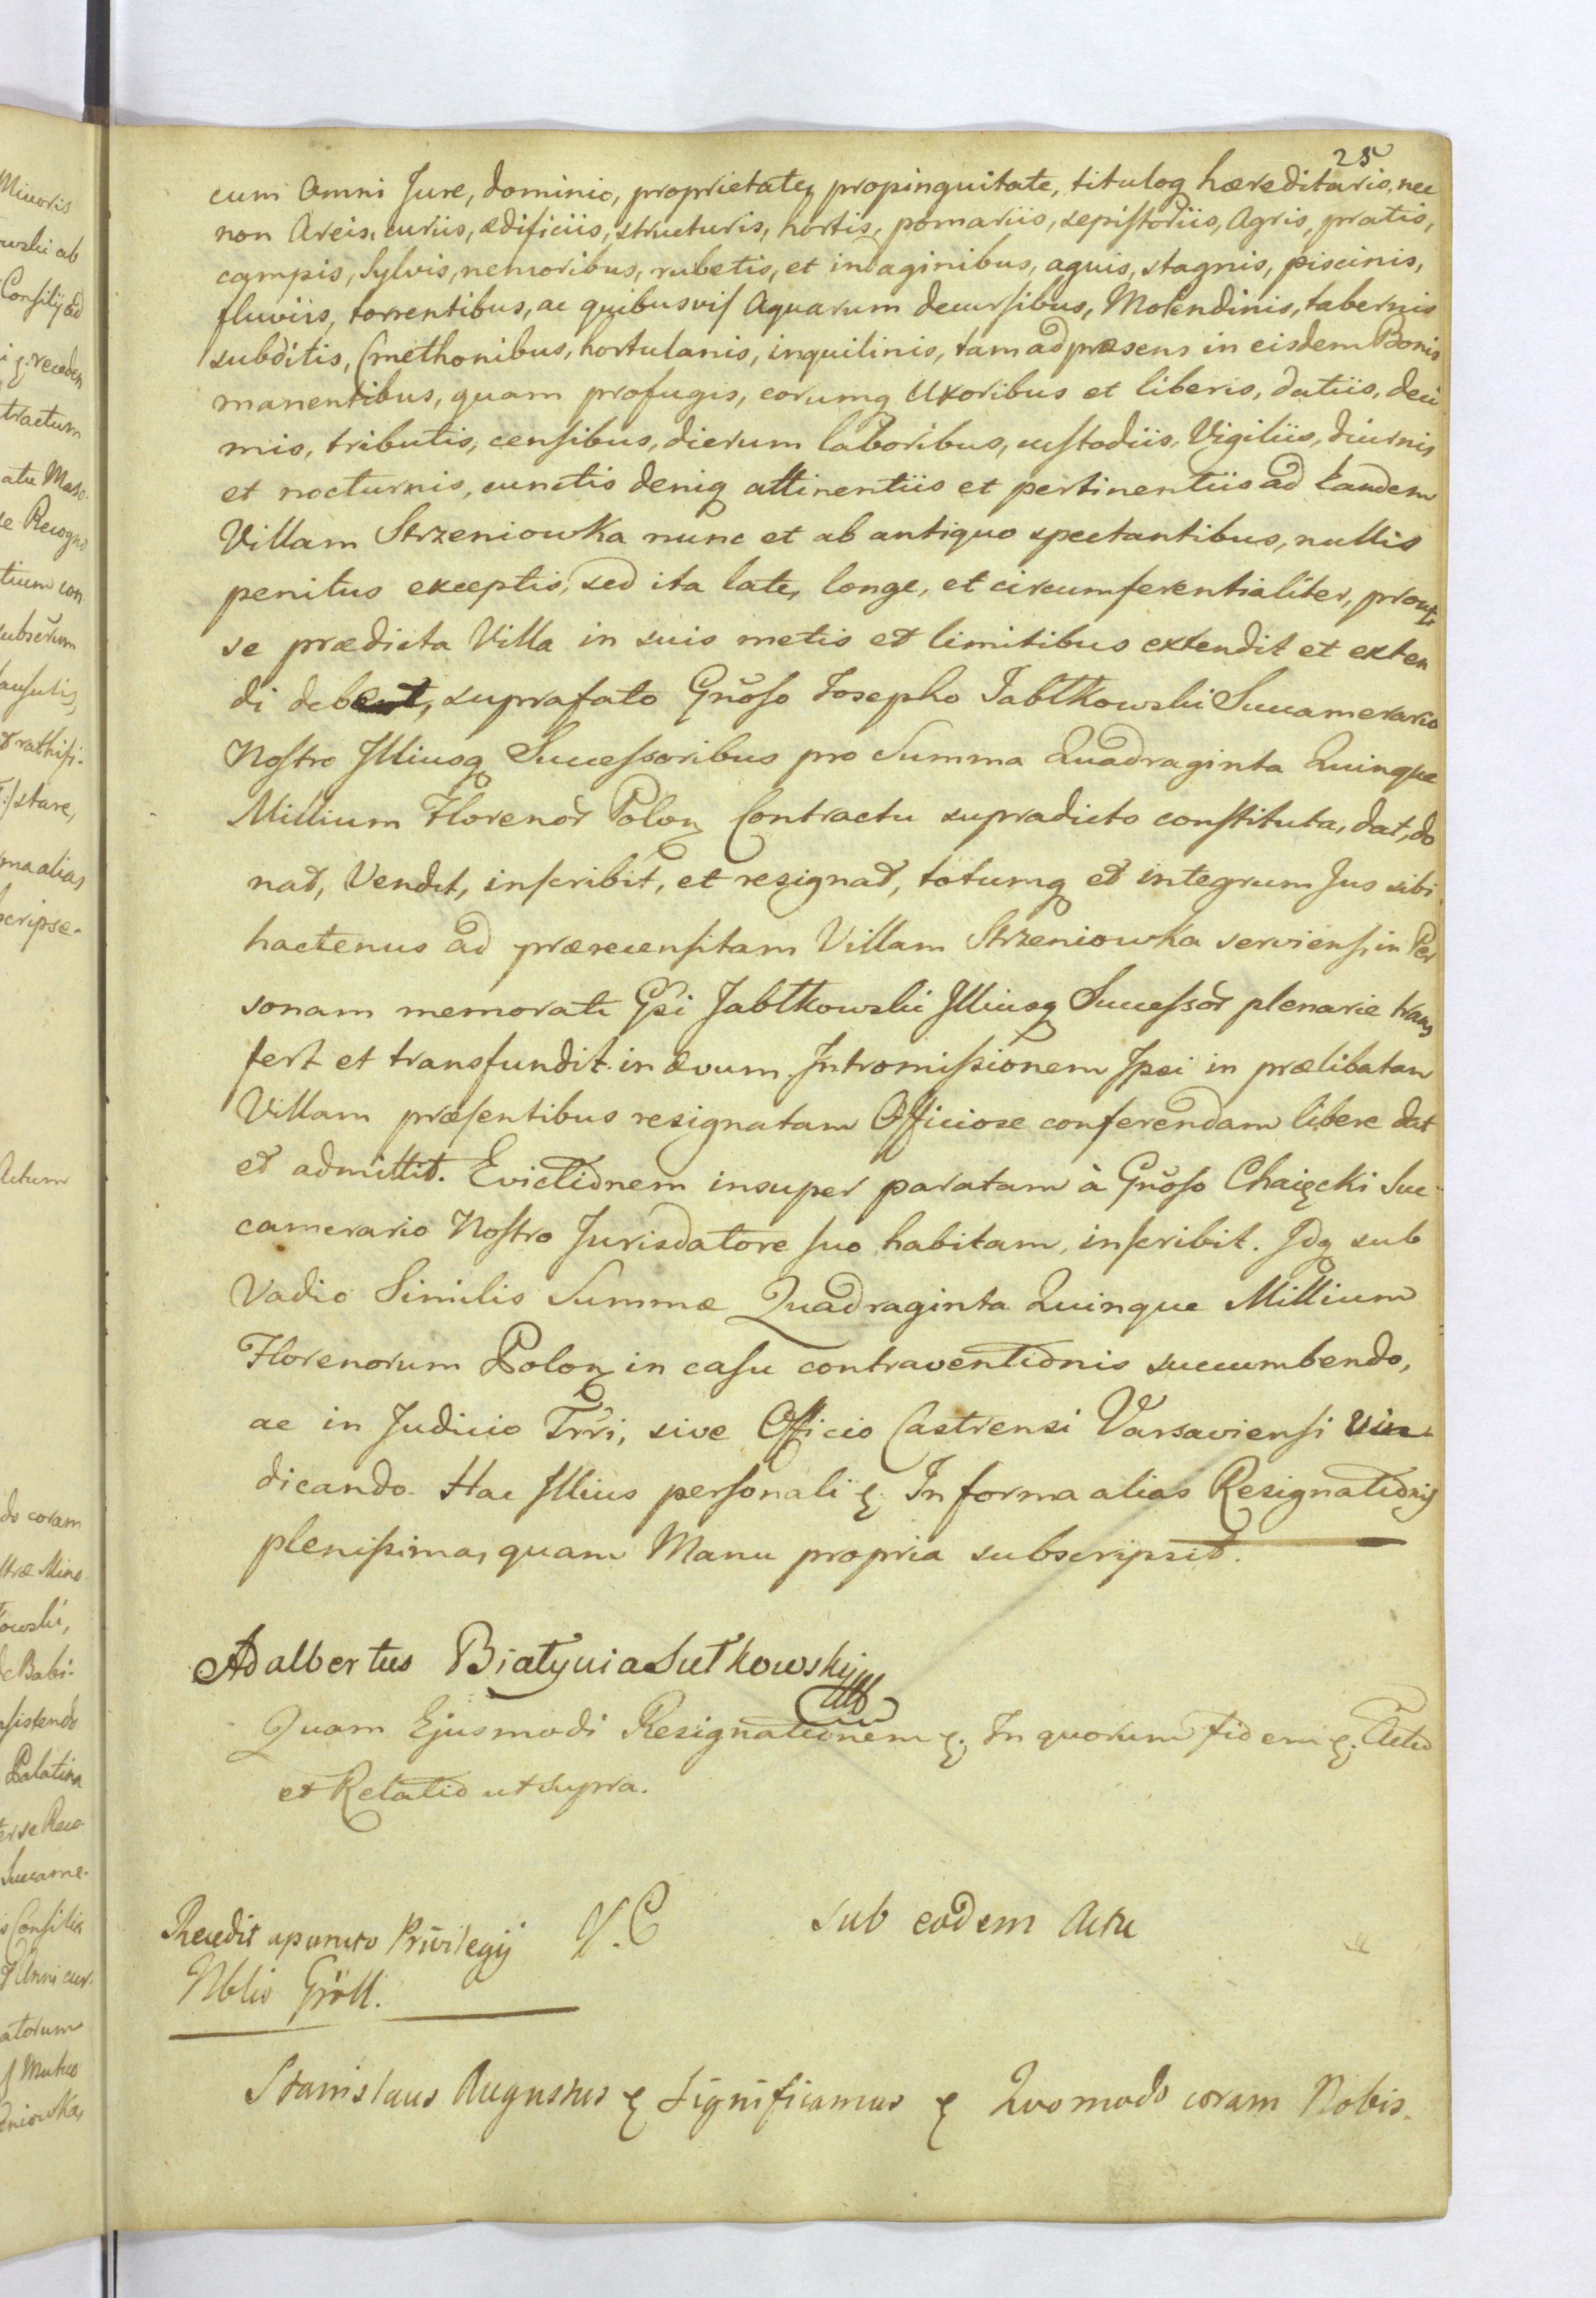 25
cum Omni Jure, dominio, proprietateq propinquitate, tituloq hæreditario, nec
non Areis, curiis, ædificiis, structuris, hortis, pomariis, sepistoriis, Agris, pratis,
campis, Sylvis, nemoribus, rubetis, et indaginibus, aquis, stagnis, piscinis,
fluviis, torrentibus, ac quibusvis Aquarum decursibus, Molendinis, tabernis
subditis, Cmethonibus, hortulanis, inquilinis, tam ad præsens in eisdem Bonis
manentibus, quam profugis, eorumq Uxoribus et liberis, datiis, deci
mis, tributis, censibus, dierum laboribus, custodiis, Vigiliis, diurnis
et nocturnis, cunctis deniq attinentiis et pertinentiis ad Eandem
Villam Strzeniowka nunc et ab antiquo spectantibus, nullis
penitus exceptis, sed ita late, longe, et circumferentialiter, prout
se prædicta Villa in suis metis et limitibus extendit et exten
di debent, suprafato Gnoso Josepho Jabłkowski Succamerario
Nostro Illiusq Successoribus pro Summa Quadraginta Quinque
Millium Florenor Polon Contractu supradicto constituta, dat, do
nat, Vendit, inscribit, et resignat, totumq et integrum Jus sibi
hactenus ad præcensitam Villam Strzeniowka serviens, in Per
sonam memorati Gsi Jabłkowski Illiusq Successor plenarie trans
fert et transfundit in ævum. Intromissionem Ipsi in prælibatam
Villam præsentibus resignatam Officiose conferendam libere dat
et admittit. Evictionem insuper paratam à Gnoso Chaięcki Suc
camerario Nostro Jurisdatore suo habitam, inscribit. Idq sub
Vadio Similis Summæ Quadraginta Quinque Millium
Florenorum Polon in casu contraventionis succumbendo,
ac in Judicio Trri, sive Officio Castrensi Varsaviensi vin
dicando. Hac Illius personali &. In forma alias Resignationis
plenissima, quam Manu propria subscripsit.
Adalbertus Białynia Sutkowskij
Quam Ejusmodi Resignationem &. In quorum fidem &. Actu
et Relatio ut supra.
Recedit a puncto Privilegij
Nblis Gröll.
sub eodem Actu
Stanislaus Augustus & Significamus & Quomodo coram Nobis.